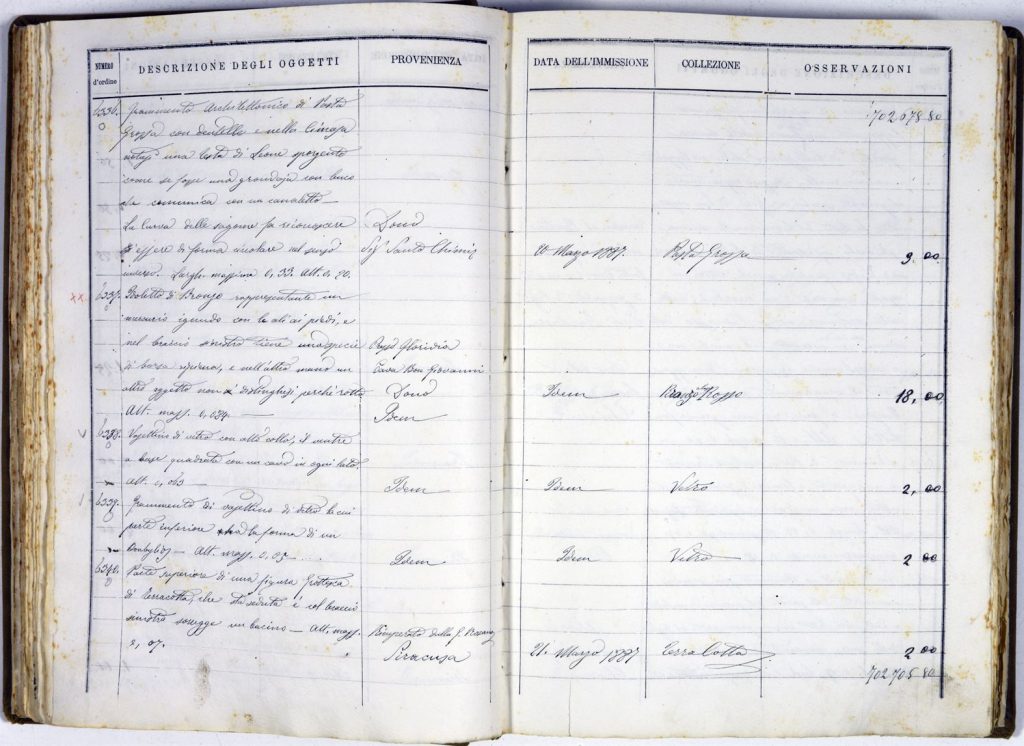 NUMERO d'ordine
DESCRIZIONE DEGLI OGGETTI
PROVENIENZA
DATA DELL'IMMISSIONE
COLLEZIONE
OSSERVAZIONI
702 678 80
6336. Frammento Architettonico di Pasta
Grossa con dentelli e nella Cimasa
una testa di Leone sporgente
come se fosse una grondaja con buco
che comunica con un canaletto —
La curva delle sagome fa riconoscere Dono
essere di forma circolare nel senso Sig. Santo 20 Marzo 1887. Pasta Grossa 9. 00
inverso. Largh. massima 0,33. Alt. 0,20.
XX 6337. Idoletto di Bronzo rappresentante un
mercurio ignudo con le ali ai piedi, e
nel braccio sinistro tiene una specie Gloridia
di borsa, e nell'altra mano un Cava Bon Giovanni
altro oggetto non è perchè rotto Dono Idem Bronzo Rosso 18, 00
Alt. mass. 0,084. — Idem
6338. Vasettino di vetro con alto collo, il ventre
a base quadrata con un cavo in ogni lato
Alt. 0,063 — Idem Idem Vetro 2, 00
6339. Frammento di vasettino di vetro la cui
parte inferiore ha la forma di un
Alt. mass. 0,05 — Idem Idem Vetro 2 00
6340. Parte superiore di una figura Grottesca
di Terracotta, che sta seduta e col braccio
sinistro sorregge un bacino — Alt. mass.
0,07. Siracusa 21. Marzo 1887 Terra Cotta 2 00
702 705 80